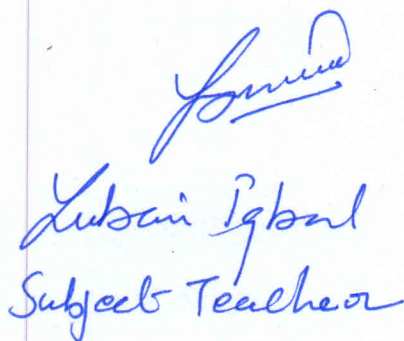 Lubain Iqbal
Subject Teacheor